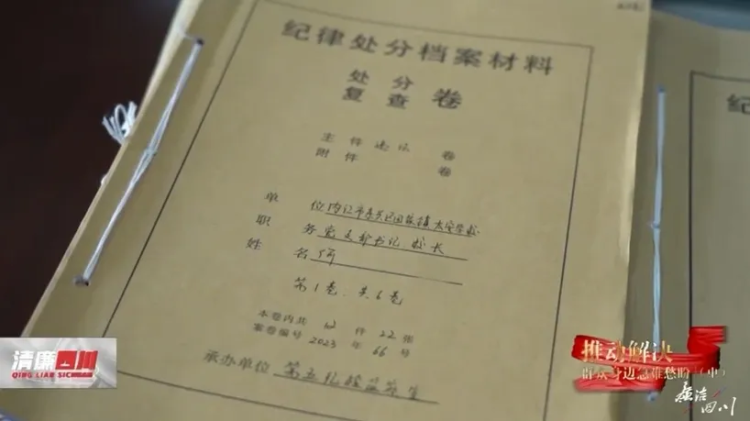 纪律处分档案材料
处分
复查 卷
主件 卷
附件 卷
单位 内江市 镇
职务 党支部书记 校长
姓名 何
第1卷.共6卷
本卷内共 件22张
案卷编号2023年66号
承办单位 第五纪检监察室
清廉四川
QING LIAN SICHUAN
推动解决
群众身边急难愁盼(中)
廉洁四川
纪